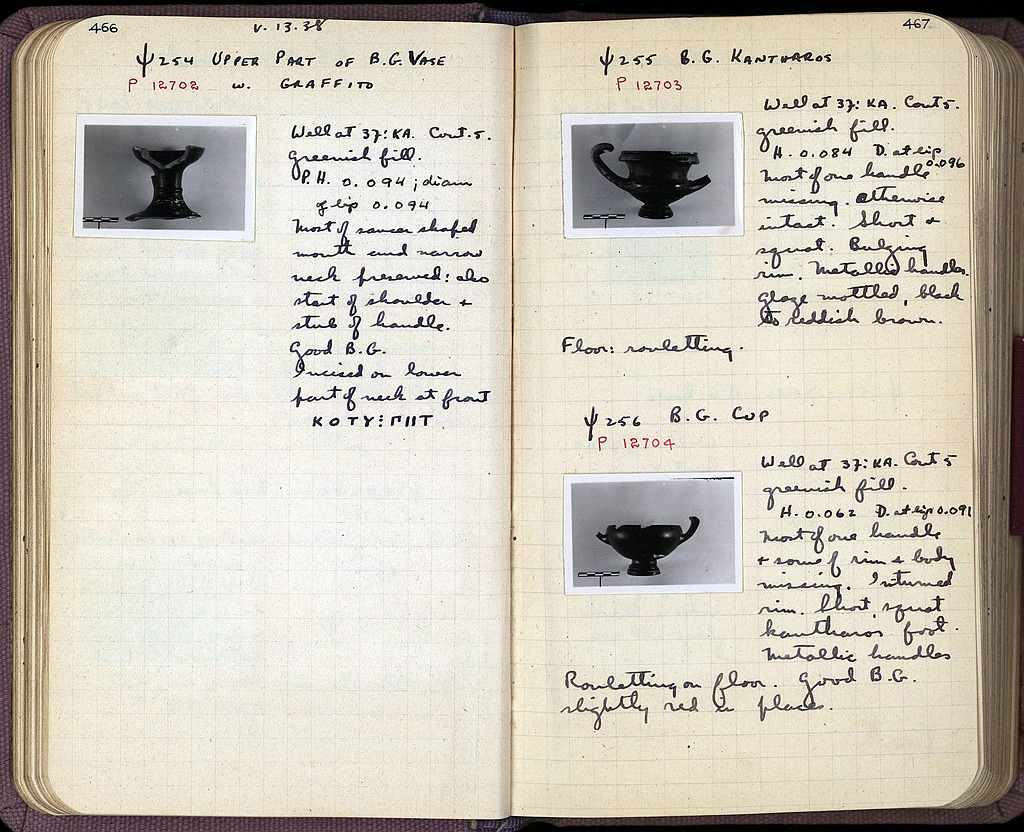 466
V. 13. 38
Ψ 254 UPPER PART OF B.G. VASE
P 12702 W. GRAFFITO
Well at 37:KA. Cont. 5.
greenish fill.
P.H. 0.094; diam
of lip 0.094
Most of saucer shaped
mouth and narrow
neck preserved: also
start of shoulder +
stub of handle.
Good B.G.
Incised on lower
part of neck at front
ΚΟΤΥ⋮ΓΙΙΤ
467
Ψ 255 B.G. KANTHAROS
P 12703
Well at 37:KA. Cont 5.
greenish fill.
H. 0.084 D. at lip
0.096
Most of one handle
missing. Otherwise
intact. Short +
squat. Bulging
rim. Metallic handles.
Glaze mottled, black
to reddish brown.
Floor: rouletting.
Ψ 256 B.G. CUP
P 12704
Well at 37:KA. Cont 5
greenish fill.
H. 0.062 D. at lip 0.091
Most of one handle
+ some of rim + body
missing. Inturned
rim. Short, squat
kantharos foot.
Metallic handles
Rouletting on floor. Good B.G.
slightly red in places.